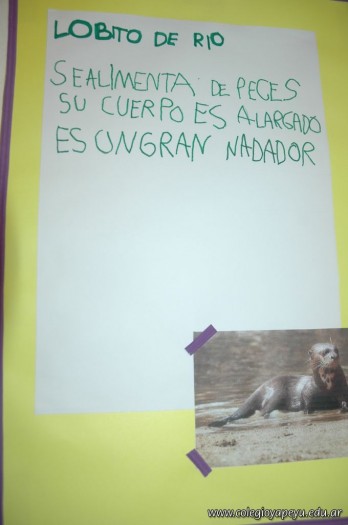 LOBITO DE RIO
SEALIMENTA DE PECES
SU CUERPO ES ALARGADO
ES UNGRAN NADADOR
www.colegioyapeyu.edu.ar